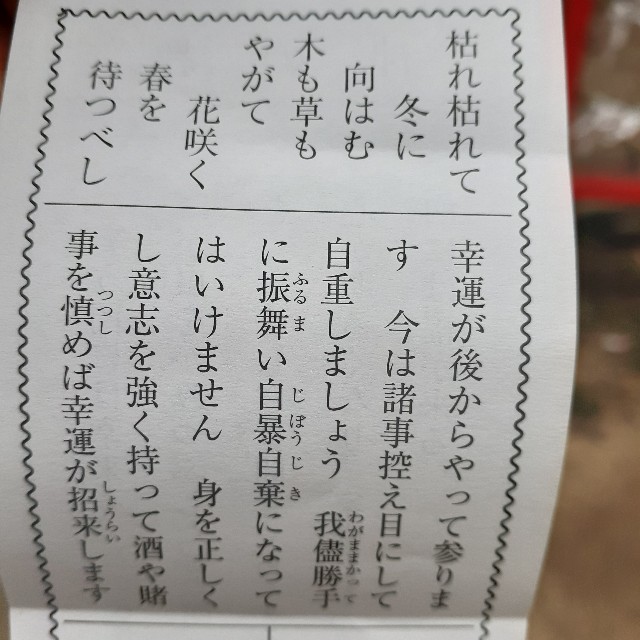 枯れ枯れて
冬に
向はむ
木も草も
やがて
花咲く
春を
待つべし
幸運が後からやって参りま
す　今は諸事控え目にして
自重しましょう　我儘勝手
に振舞い自暴自棄になって
はいけません　身を正しく
し意志を強く持って酒や賭
事を慎めば幸運が招来します
わがままかって
ふるま
じぼうじき
つつし
しょうらい